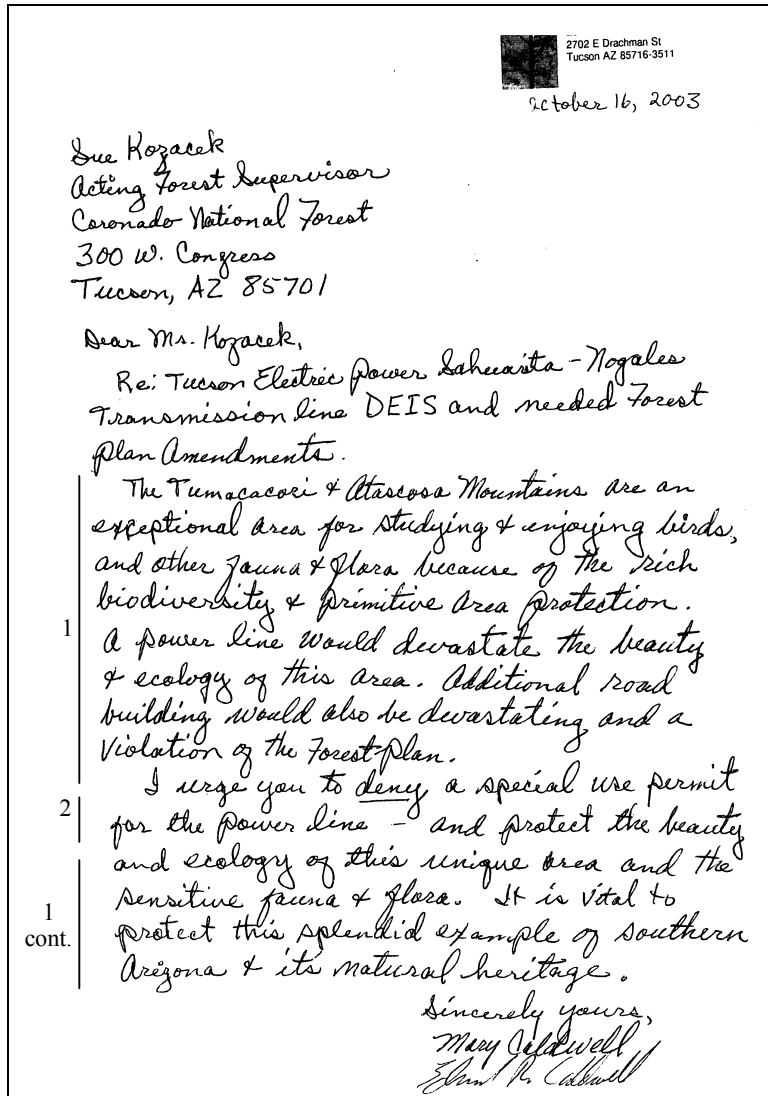 2702 E Drachman St
Tucson AZ 85716-3511
October 16, 2003
Sue Kozacek
Acting Forest Supervisor
Coronado National Forest
300 W. Congress
Tucson, AZ 85701
Dear Ms. Kozacek,
Re: Tucson Electric Power Sahuarita - Nogales
Transmission line DEIS and needed Forest
Plan Amendments.
The Tumacacori & Atascosa Mountains are an
exceptional area for studying & enjoying birds,
and other fauna & flora because of the rich
biodiversity & primitive area protection.
1
A power line would devastate the beauty
& ecology of this area. Additional road
building would also be devastating and a
violation of the Forest Plan.
I urge you to deny a special use permit
2
for the power line - and protect the beauty
and ecology of this unique area and the
sensitive fauna & flora. It is vital to
1
cont.
protect this splendid example of southern
Arizona & its natural heritage.
Sincerely yours,
Mary Caldwell
R. Caldwell